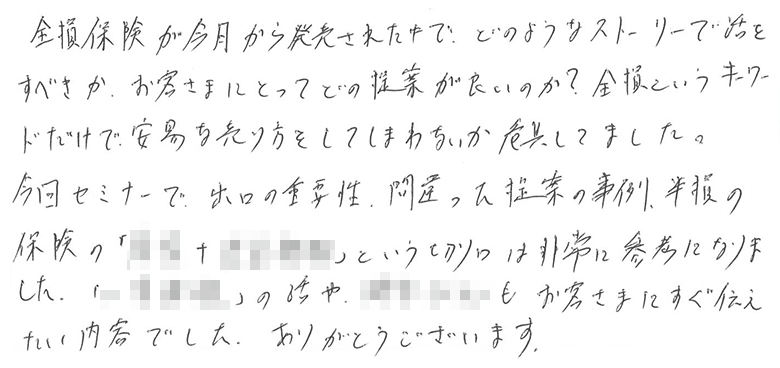 全損保険が今月から発売された中で、どのようなストーリーで話を
すべきか、お客さまにとってどの提案が良いのか？全損というキーワー
ドだけで、安易な売り方をしてしまわないか危具してました。
今回セミナーで、出口の重要性、問違った提案の事例、半損の
保険の「 + 」という切り口は非常に参考になりま
した。「 」の話や、 もお客さまにすぐ伝え
たい内容でした。ありがとうございます。